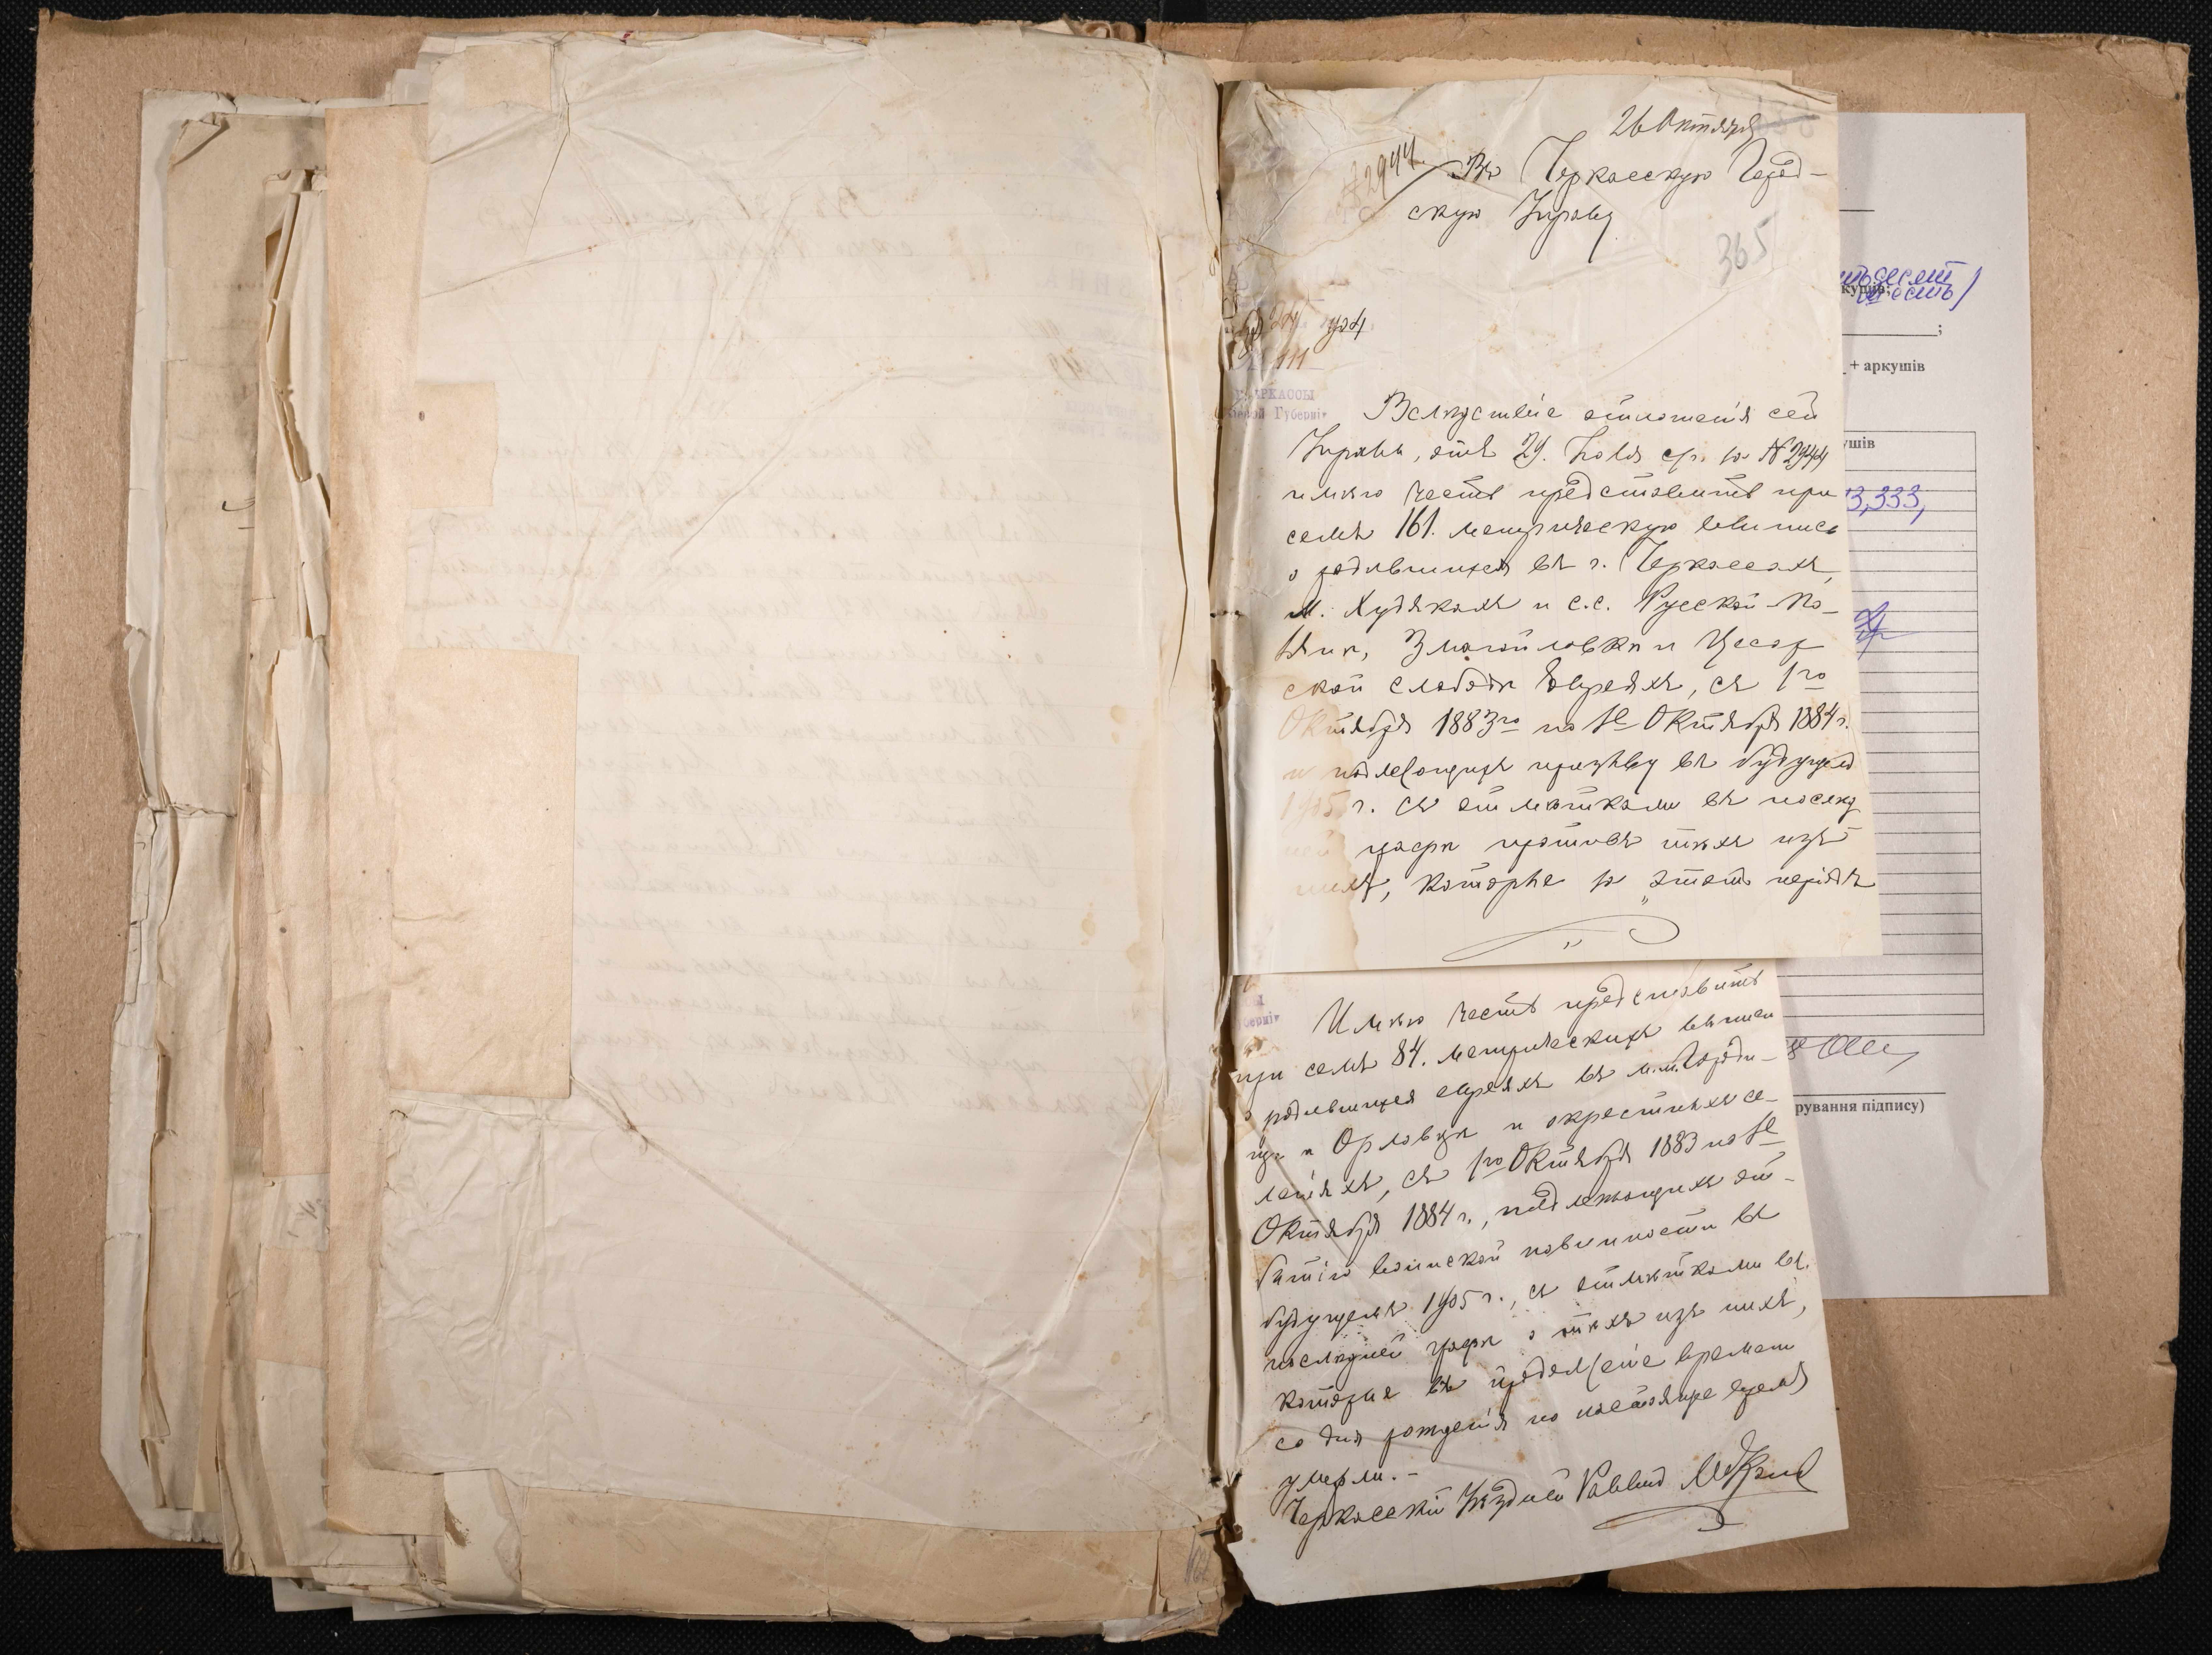 26 Октября
№ 2944
Въ Черкасскую Город-
скую Управу
365
904
111
ЧЕРКАССЫ
Губерніи
Вслѣдствіе отношенія сей
Управы, отъ 29. Іюля с/г. за № 2944
имѣю честь представить при
семъ 161. метрическую выпись
о родившихся въ г. Черкассахъ,
м. Худякахъ и с.с. Русской По-
лянѣ, Змогайловкѣ и Цесар
ской слободѣ Евреяхъ, съ 1го
Октября 1883го по 1е Октября 1884 г.
и подлежащихъ призыву въ будущемъ
1905 г. съ отмѣтками въ послѣд
ней графѣ противъ тѣхъ изъ
нихъ, которые за этотъ періодъ
Имѣю честь представить
при семъ 84. метрическихъ выписи
о родившихся евреяхъ въ м.м. Городи-
щѣ и Орловцѣ и окрестныхъ се-
леніяхъ, съ 1го Октября 1883 по 1е
Октября 1884 г., подлежащихъ от-
бытію воинской повинности въ
будущемъ 1905 г., съ отмѣтками въ
послѣдней графѣ о тѣхъ изъ нихъ,
которые въ продолженіе времени
со дня рожденія по настоящее время
умерли.-
Черкасскій Уѣздный Раввинъ
десят
шесть)
кушів;
;
+ аркушів
ушів
3,333,
рування підпису)